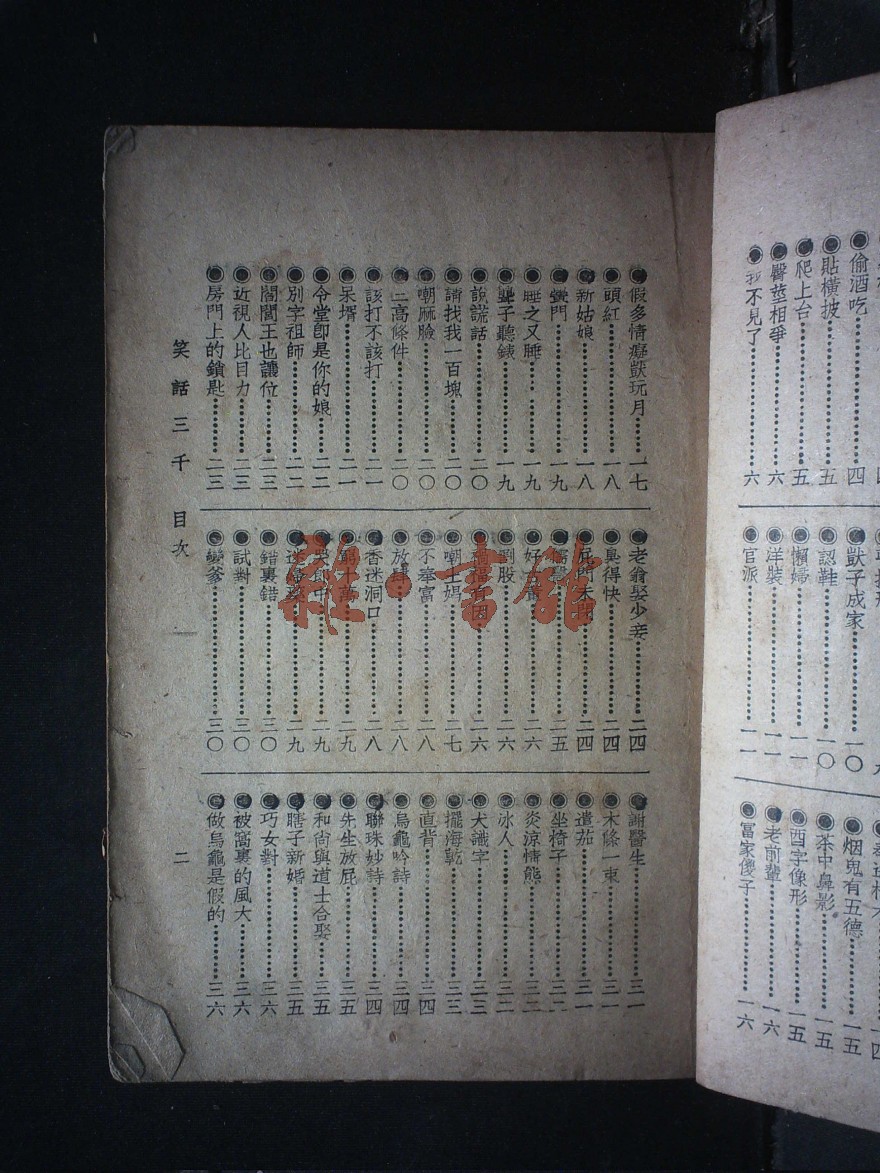 我不見了⋯⋯六
爬上台⋯⋯五
貼橫披⋯⋯五
偷酒吃⋯⋯四
官派⋯⋯一一
洋裝⋯⋯一一
懶婦⋯⋯一一
認鞋⋯⋯一〇
獃子成家⋯⋯一〇
富家傻子⋯⋯一六
老前輩⋯⋯一六
西字像形⋯⋯一五
茶中鼻影⋯⋯一五
烟鬼有五德⋯⋯一五
假多情癡獃玩月⋯⋯一七
頭紅⋯⋯一八
新姑娘⋯⋯一八
睡之又睡⋯⋯一九
聾子聽錶⋯⋯一九
說謊話⋯⋯二〇
請找我一百塊⋯⋯二〇
嘲麻臉⋯⋯二〇
二高條件⋯⋯二〇
該打不該打⋯⋯二一
呆壻⋯⋯二一
令堂卽是你的娘⋯⋯二二
別字祖師⋯⋯二二
閻閻王也讓位⋯⋯二三
近視人比目力⋯⋯二三
房門上的鎖匙⋯⋯二三
老翁娶少妾⋯⋯二四
臭得快⋯⋯二四
屁門未開⋯⋯二四
割股⋯⋯二六
嘲土媽⋯⋯二七
不奉富⋯⋯二八
放肆⋯⋯二八
香迷洞口⋯⋯二八
第十萬⋯⋯二九
吳郎中⋯⋯二九
錯裏錯⋯⋯三〇
試對⋯⋯三〇
變爹⋯⋯三〇
謝醫生⋯⋯三一
木條一束⋯⋯三一
遺茄⋯⋯三一
坐椅子⋯⋯三二
炎涼情態⋯⋯三二
冰人⋯⋯三二
犬識字⋯⋯三三
擺海乾⋯⋯三三
直背⋯⋯三四
烏龜吟詩⋯⋯三四
聯珠妙詩⋯⋯三四
先生放屁⋯⋯三五
和尙與道士合娶⋯⋯三五
瞎子新婚⋯⋯三五
巧女對⋯⋯三六
被窩裏的風大⋯⋯三六
做烏龜是假的⋯⋯三六
笑話三千 目次
二
雜·書館